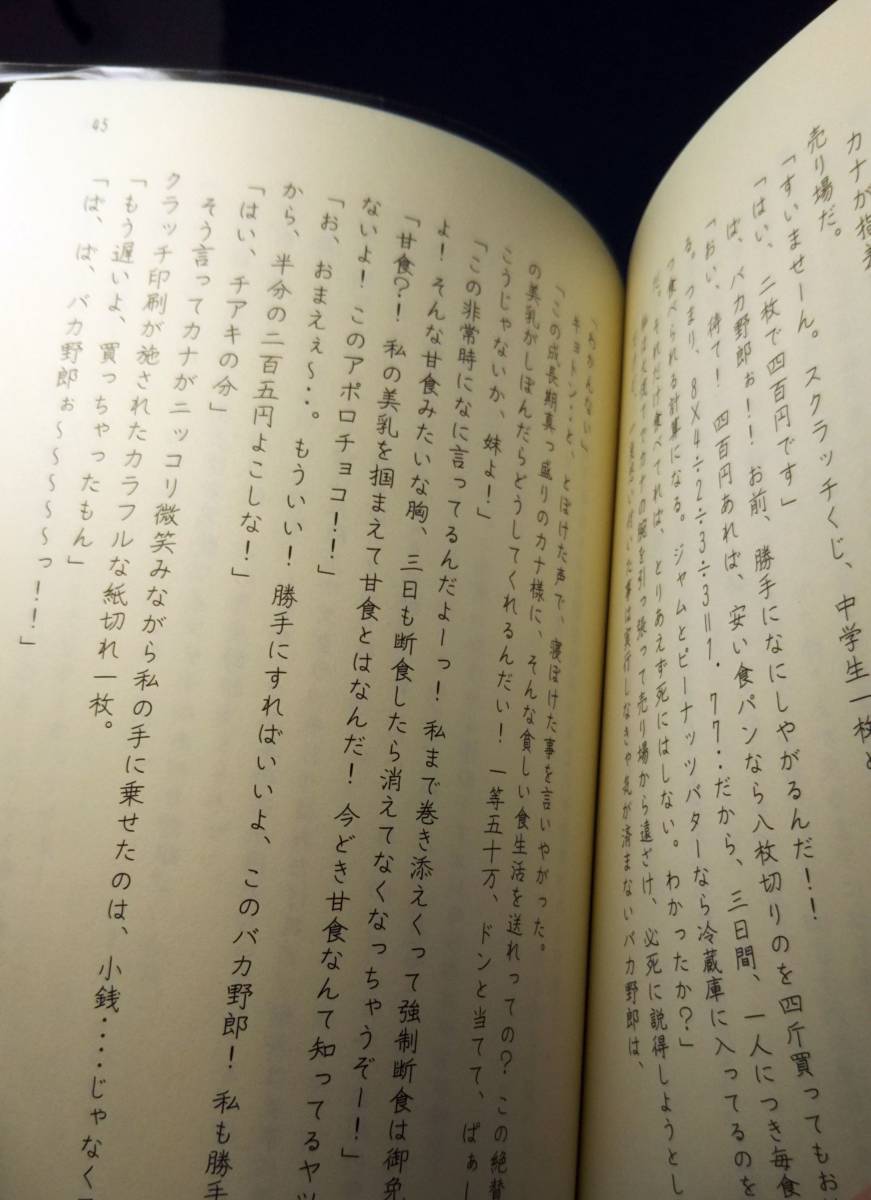 カナが指
売り場だ。
「すいませーん。スクラッチくじ、中学生一枚と
「はい、二枚で四百円です」
「ば、バカ野郎ぉ!! お前、勝手になにしやがるんだ!!
「おい、待て! 四百円あれば、安い食パンなら八枚切りのを四斤買ってもお
る。つまり、8×4÷2÷3÷3=1.77‥だから、三日間、一人につき毎食
つ食べられる計算になる。ジャムとピーナッツバターなら冷蔵庫に入ってるのを
だ。それだけ食べてれば、とりあえず死にはしない。わかったか?」
カナの腕を引っ張って売り場から遠ざけ、必死に説得しようとし
付いた事は実行しなきゃ気が済まないバカ野郎は、
「わかんない」
キョトン‥と、とぼけた声で、寝ぼけた事を言いやがった。
「この成長期真っ盛りのカナ様に、そんな貧しい食生活を送れっての? この絶賛
の美乳がしぼんだらどうしてくれるんだい! 一等五十万、ドンと当てて、ぱぁー
こうじゃないか、妹よ!」
「この非常時になに言ってるんだよーっ! 私まで巻き添えくって強制断食は御免
よ! そんな甘食みたいな胸、三日も断食したら消えてなくなっちゃうぞー!」
「甘食?! 私の美乳を掴まえて甘食とはなんだ! 今どき甘食なんて知ってるヤツ
ないよ! このアポロチョコ!!」
「お、おまえぇ〜‥。もういい! 勝手にすればいいよ、このバカ野郎! 私も勝手
から、半分の二百五円よこしな!」
「はい、チアキの分」
そう言ってカナがニッコリ微笑みながら私の手に乗せたのは、小銭‥‥じゃなく
クラッチ印刷が施されたカラフルな紙切れ一枚。
「もう遅いよ、買っちゃったもん」
「ば、ば、バカ野郎ぉ〜〜〜〜〜っ!!」
45